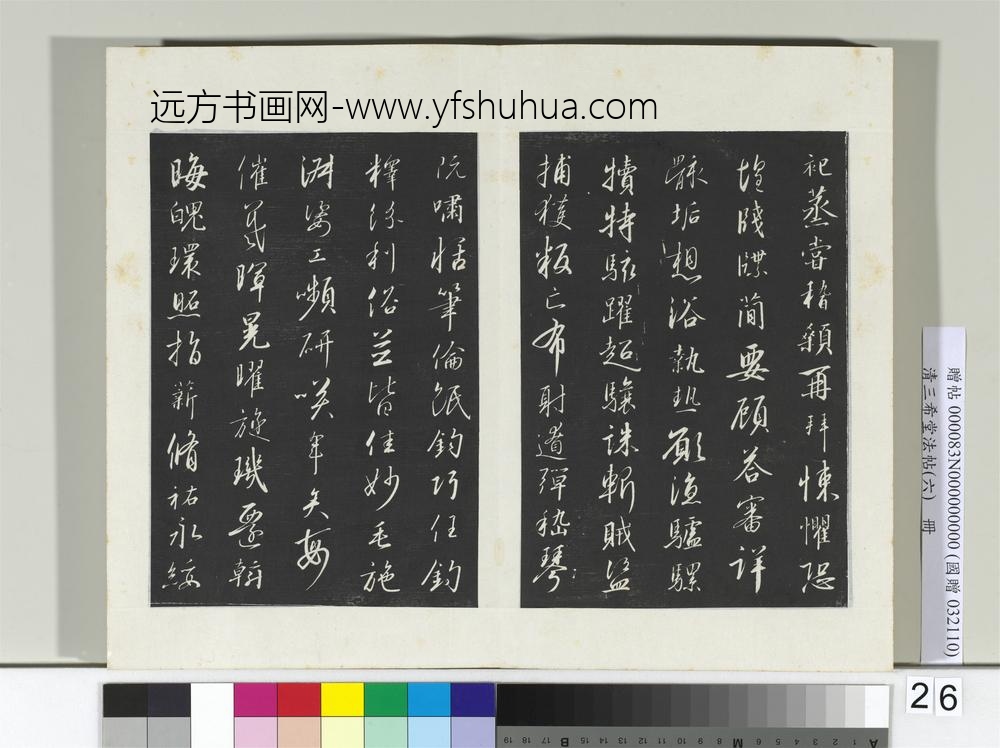 远方书画网-www.yfshuhua.com
祀蒸嘗稽顙再拜悚懼恐
惶牋牒簡要顧答審詳
骸垢想浴執熱願涼驢騾
犢特駭躍超驤誅斬賊盜
捕獲叛亡布射遼彈嵇琴
阮嘯恬筆倫紙鈞巧任釣
釋紛利俗並皆佳妙毛施
淑姿工嚬研咲年矢每
催羲暉晃曜旋璣懸斡
晦魄環照指薪脩祜永綏
贈帖 000083N000000000 (國贈 032110)
清三希堂法帖(六) 冊
26